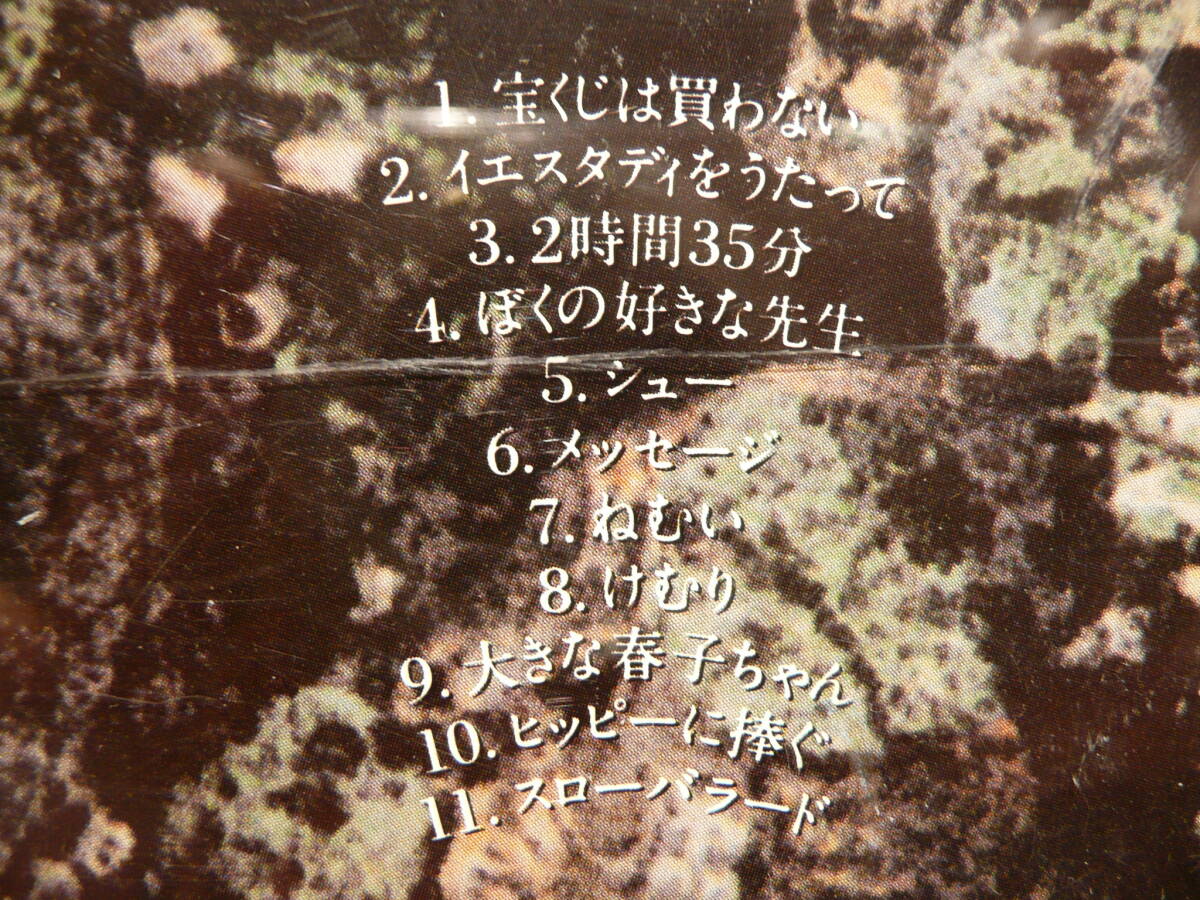 1. 宝くじは買わない
2. イエスタディをうたって
3. 2時間35分
4. ぼくの好きな先生
5. シュー
6. メッセージ
7. ねむい
8. けむり
9. 大きな春子ちゃん
10. ヒッピーに捧ぐ
11. スローバラード